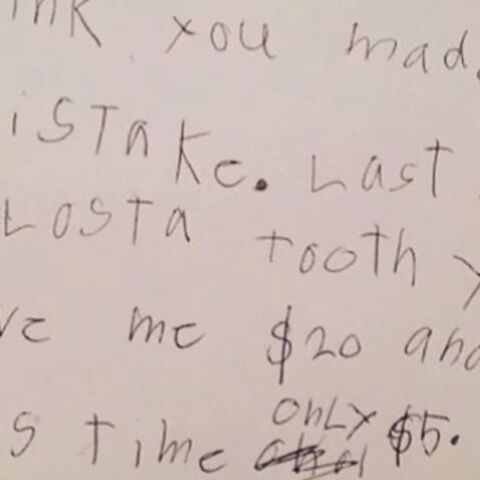 ink you mad
istake. Last
Lost a tooth y
ve me $20 and
s time only $5.